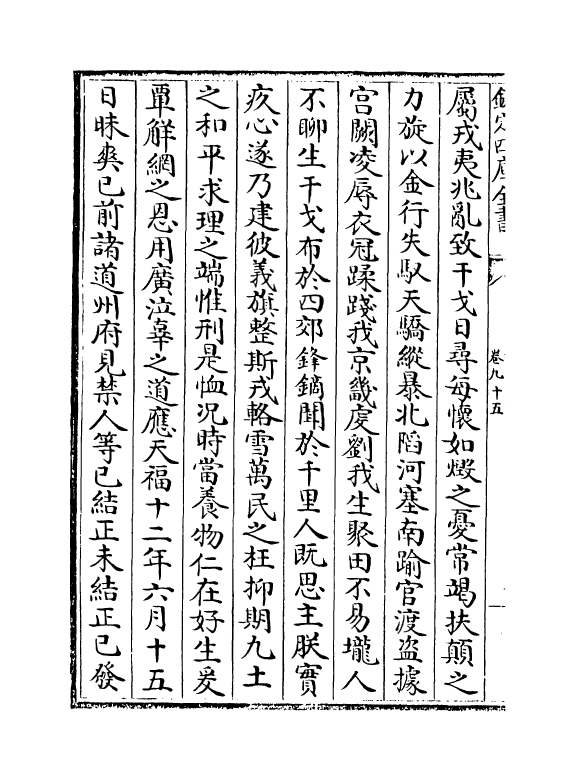 欽定四庫全書
卷九十五
屬戎夷兆亂致干戈日尋每懷如燬之憂常竭扶顛之
力旋以金行失馭天驕縱暴北陷河塞南踰官渡盗據
宫闕凌辱衣冠蹂踐我京畿虔劉我生聚田不易壠人
不聊生干戈布於四郊鋒鏑聞於千里人既思主朕實
疚心遂乃建彼義旗整斯戎輅雪萬民之枉抑期九土
之和平求理之端惟刑是恤况時當養物仁在好生爰
覃解網之恩用廣泣辜之道應天福十二年六月十五
日昧爽已前諸道州府見禁人等已結正未結正已發